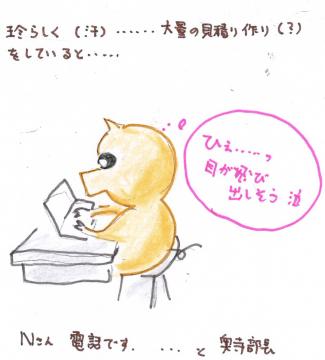 珍らしく（汗）……大量の見積り作り（？）
をしていると……
ひぇ……っ
目が飛び
出しそう 泣
Nさん 電話です. …と 奥寺部長